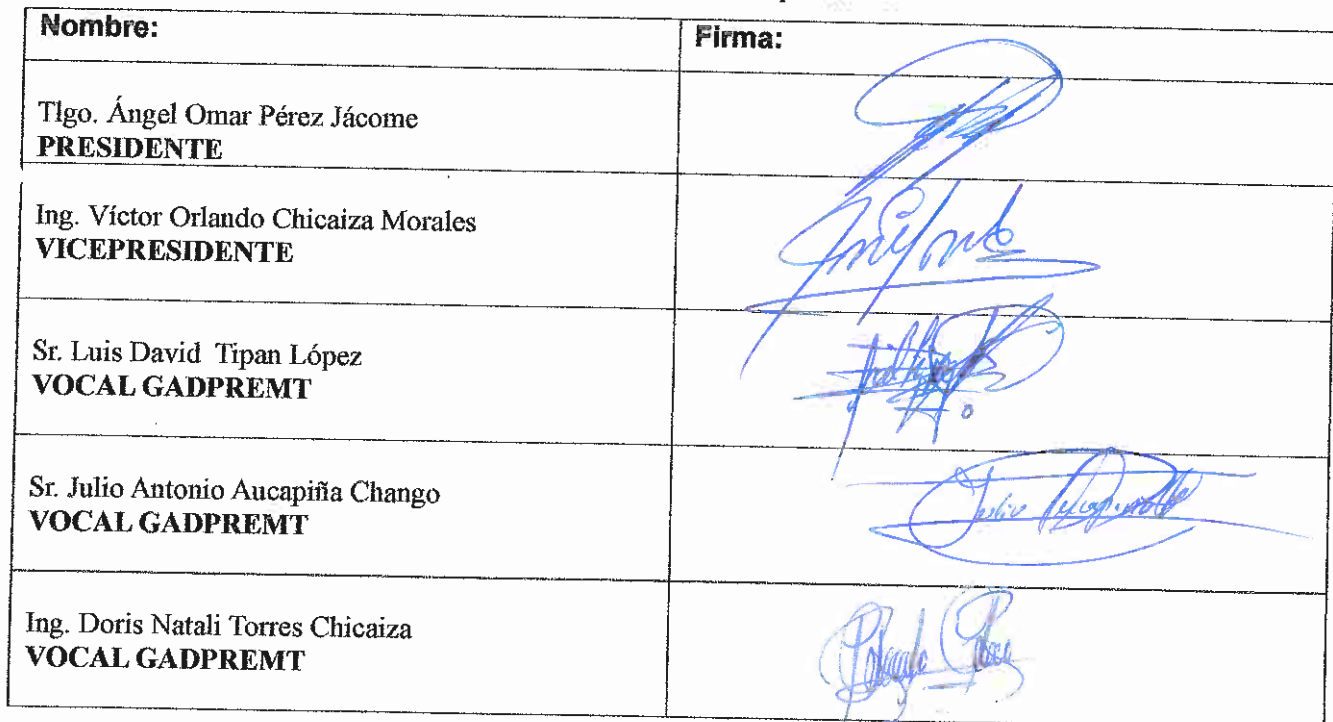 Nombre:
Firma:
Tlgo. Ángel Omar Pérez Jácome
PRESIDENTE
Ing. Víctor Orlando Chicaiza Morales
VICEPRESIDENTE
Sr. Luis David Tipan López
VOCAL GADPREMT
Sr. Julio Antonio Aucapiña Chango
VOCAL GADPREMT
Julio
Ing. Doris Natali Torres Chicaiza
VOCAL GADPREMT